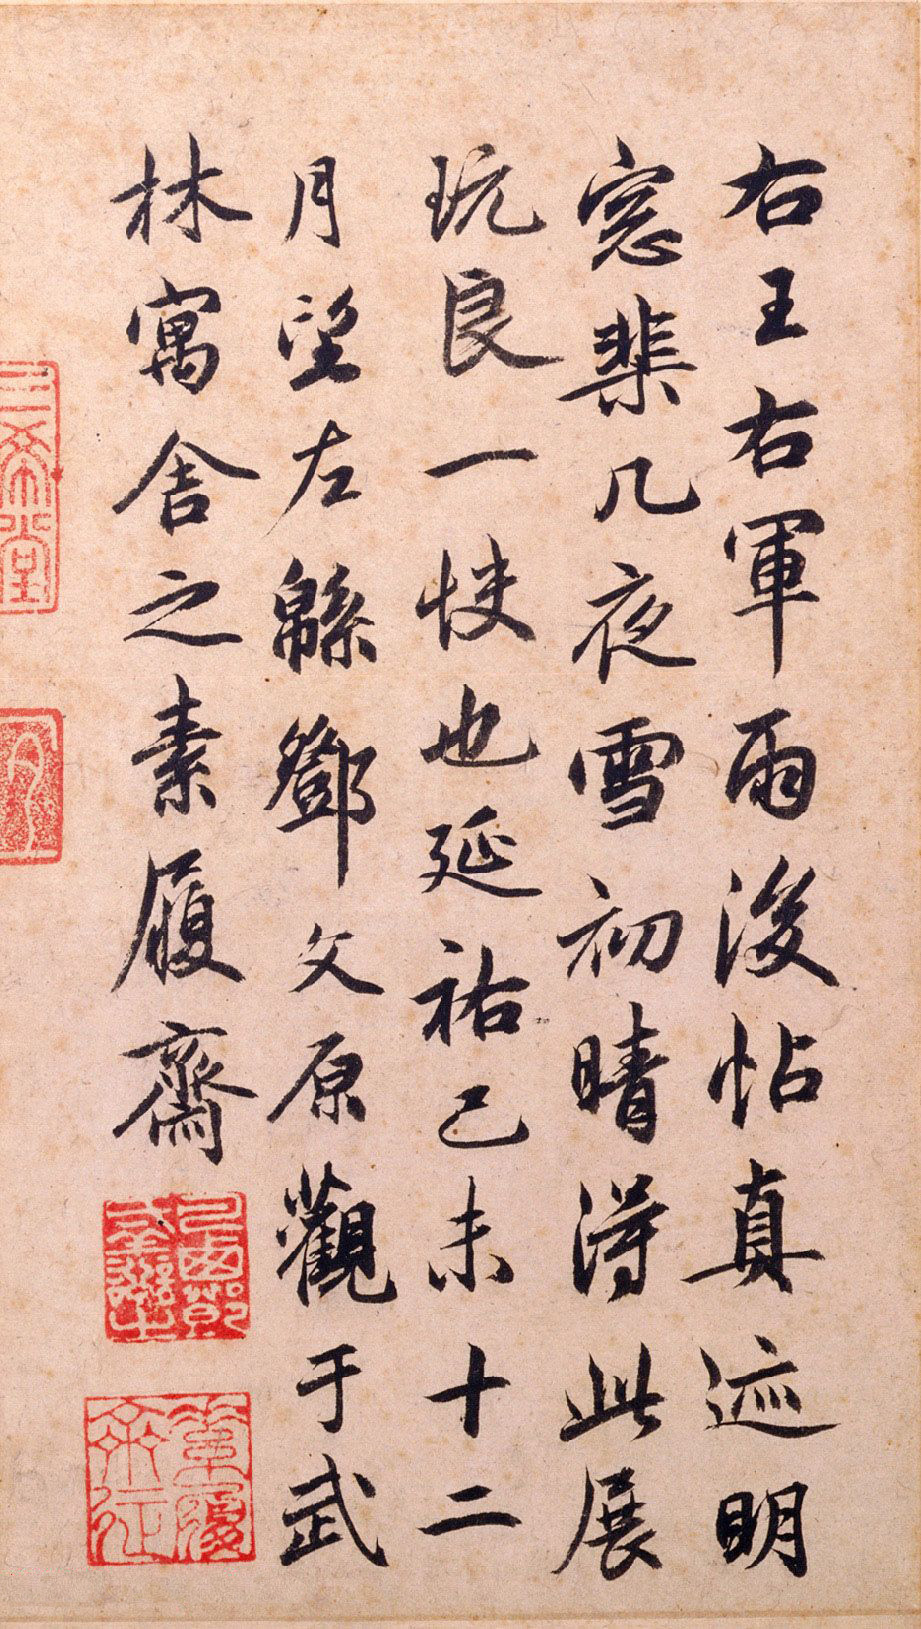 右王右軍雨後帖真迹明
窓棐几夜雪初晴得此展
玩良一快也延祐己未十二
月望左綿鄧文原觀于武
林寓舍之素履齋
三希堂